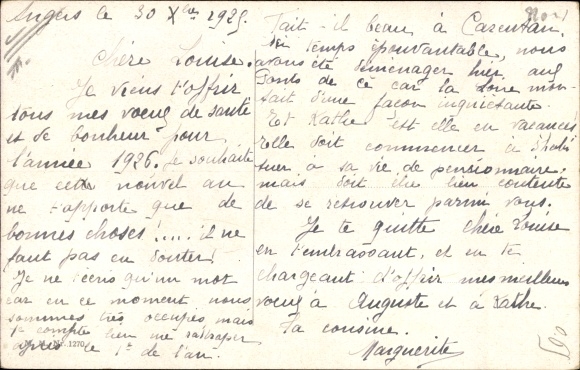 Angers le 30 Xbre 1925.
Chère Louise.
Je viens t'offrir
tous mes voeux de santé
et de bonheur pour
l'année 1926. Je souhaite
que cette nouvel an
ne t'apporte que de
bonnes choses!.... il ne
faut pas en douter!
Je ne t'écris qu'un mot
car en ce moment nous
sommes très occupés mais
je compte bien me rattraper
après le 1er de l'an.
Nr. 1270
Fait-il beau à Carentan.
Ici temps épouvantable, nous
avons été déménager hier, aux
Ponts de Cé car la Loire mon-
tait d'une façon inquiétante.
Et Kathe est elle en vacances
Elle doit commencer à s'habi
tuer à sa vie de pensionnaire.
mais doit être bien contente
de se retrouver parmi vous.
Je te quitte chère Louise
en t'embrassant, et en te
chargeant d'offrir mes meilleurs
voeux à Auguste et à Kathe
Ta cousine.
Marguerite